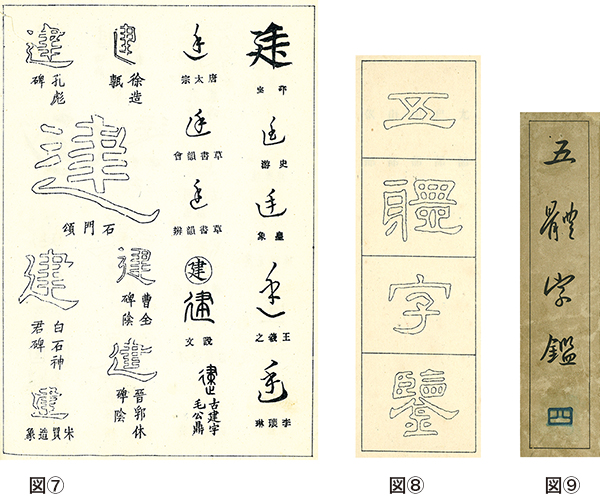 建
史游
建
皇象
建
王羲之
建
建
唐太宗
建
草書韻會
建
草書韻辨
建
建
説文
建
古建字
毛公鼎
建
徐造
甎
建
曹全
碑陰
建
晉郭休
碑陰
建
孔彪
碑
建
石門頌
建
白石神
君碑
建
宋買造象
図⑦
五
體
字
鑒
図⑧
五體字鑑
四
図⑨